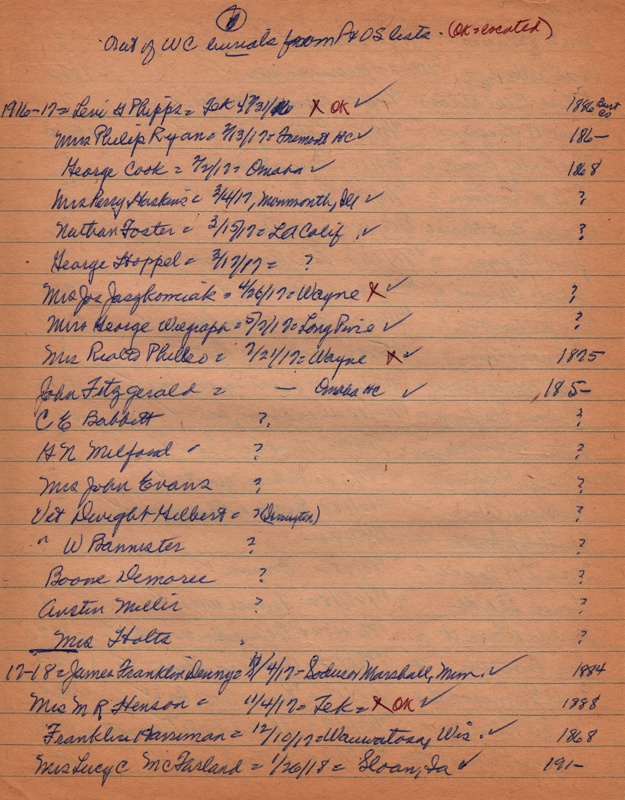 1
Out of WC burials from P&OS lists - (OK = located)
1916-17 = Levi H Phipps = Tek X OK ✓ 1886 Burt Co
Mrs Philip Ryan = 2/13/17 = Fremont HC ✓ 186-
George Cook = 2/2/17 = Omaha ✓ 1868
Mrs Perry Hoskins = 3/4/17, Monmonth, Ill ✓ ?
Nathan Foster = 3/15/17 = LA Calif ✓ ?
George Hoppel = 3/17/17 = ?
Mrs Jos Jaszkomiak = 4/26/17 = Wayne X ✓ ?
Mrs George = 5/7/17 = Long Pine ✓ ?
Mrs Philleo = 7/21/17 = Wayne X ✓ 1875
John Fitzgerald = - Omaha HC ✓ 185-
C E Babbitt ? ?
H N Milford " ? ?
Mrs John Evans ? ?
Vet Dwight Hilbert = ? ?
" W Bannister ? ?
Boone Demoree ? ?
Austin Miller ? ?
Mrs Holts ?
17-18 = James Franklin Denny = /4/17 - Marshall, ✓ 1884
Mrs M R Henson = 11/4/17 = Tek = X OK ✓ 1888
Franklin Harriman = 12/10/17 = Wauwatosa, Wis. ✓ 1868
Mrs Lucy C McFarland = 1/26/18 = Sloan, Ia ✓ 191-